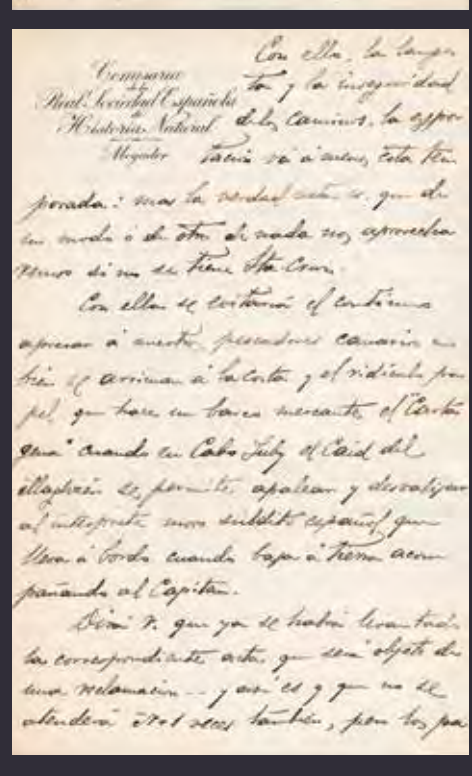 Comisaria
de la
Real Sociedad Española
de
Historia Natural
Mogador
Con ella, la langos
ta y la inseguridad
de los caminos, la expor
tación vá á menos esta tem
porada: mas la verdad es que de
un modo ó de otro de nada nos aprovecha
remos si no se tiene Sta Cruz.
Con ella se evitaría el continuo
apresar á nuestros pescadores canarios
bién se arriman á la costa y el ridículo pa
pel, que hace un barco mercante, el "Carta
gena" cuando en Cabo Juby el Caid del
se permite, apalear y desvalijar
al interprete moro subdito español que
lleva á bordo cuando baja á tierra acom
pañando al Capitan.
Dirá V. que ya se habrá levantado
la correspondiente acta, que será objeto de
una reclamación -- y así es y que no se
atenderá veces tambien, pero los pa